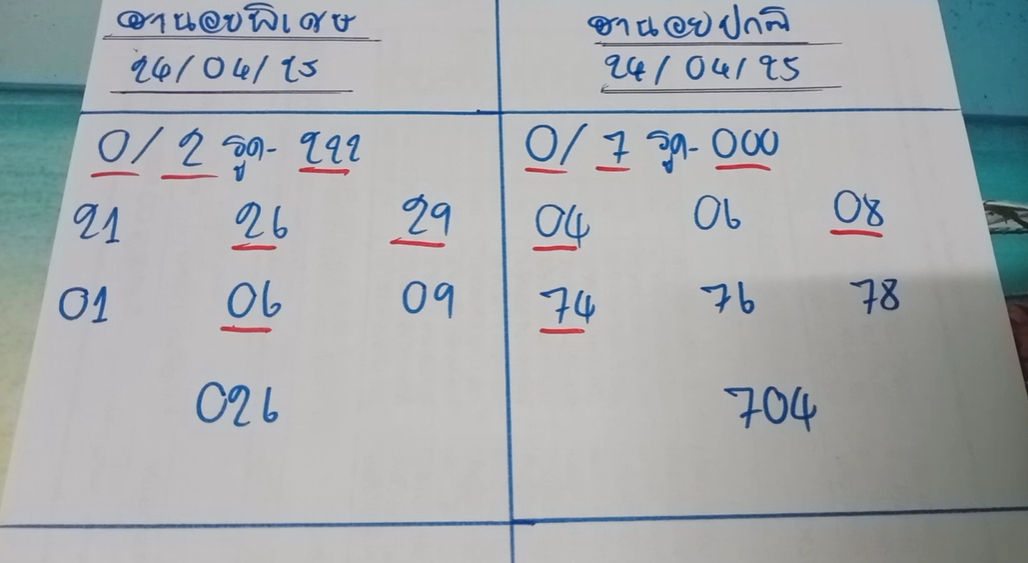 ฮานอยพิเศษ
24/04/25
0/2 รูด- 222
21 26 29
01 06 09
026
ฮานอยปกติ
24/04/25
0/7 รูด- 000
04 06 08
74 76 78
704